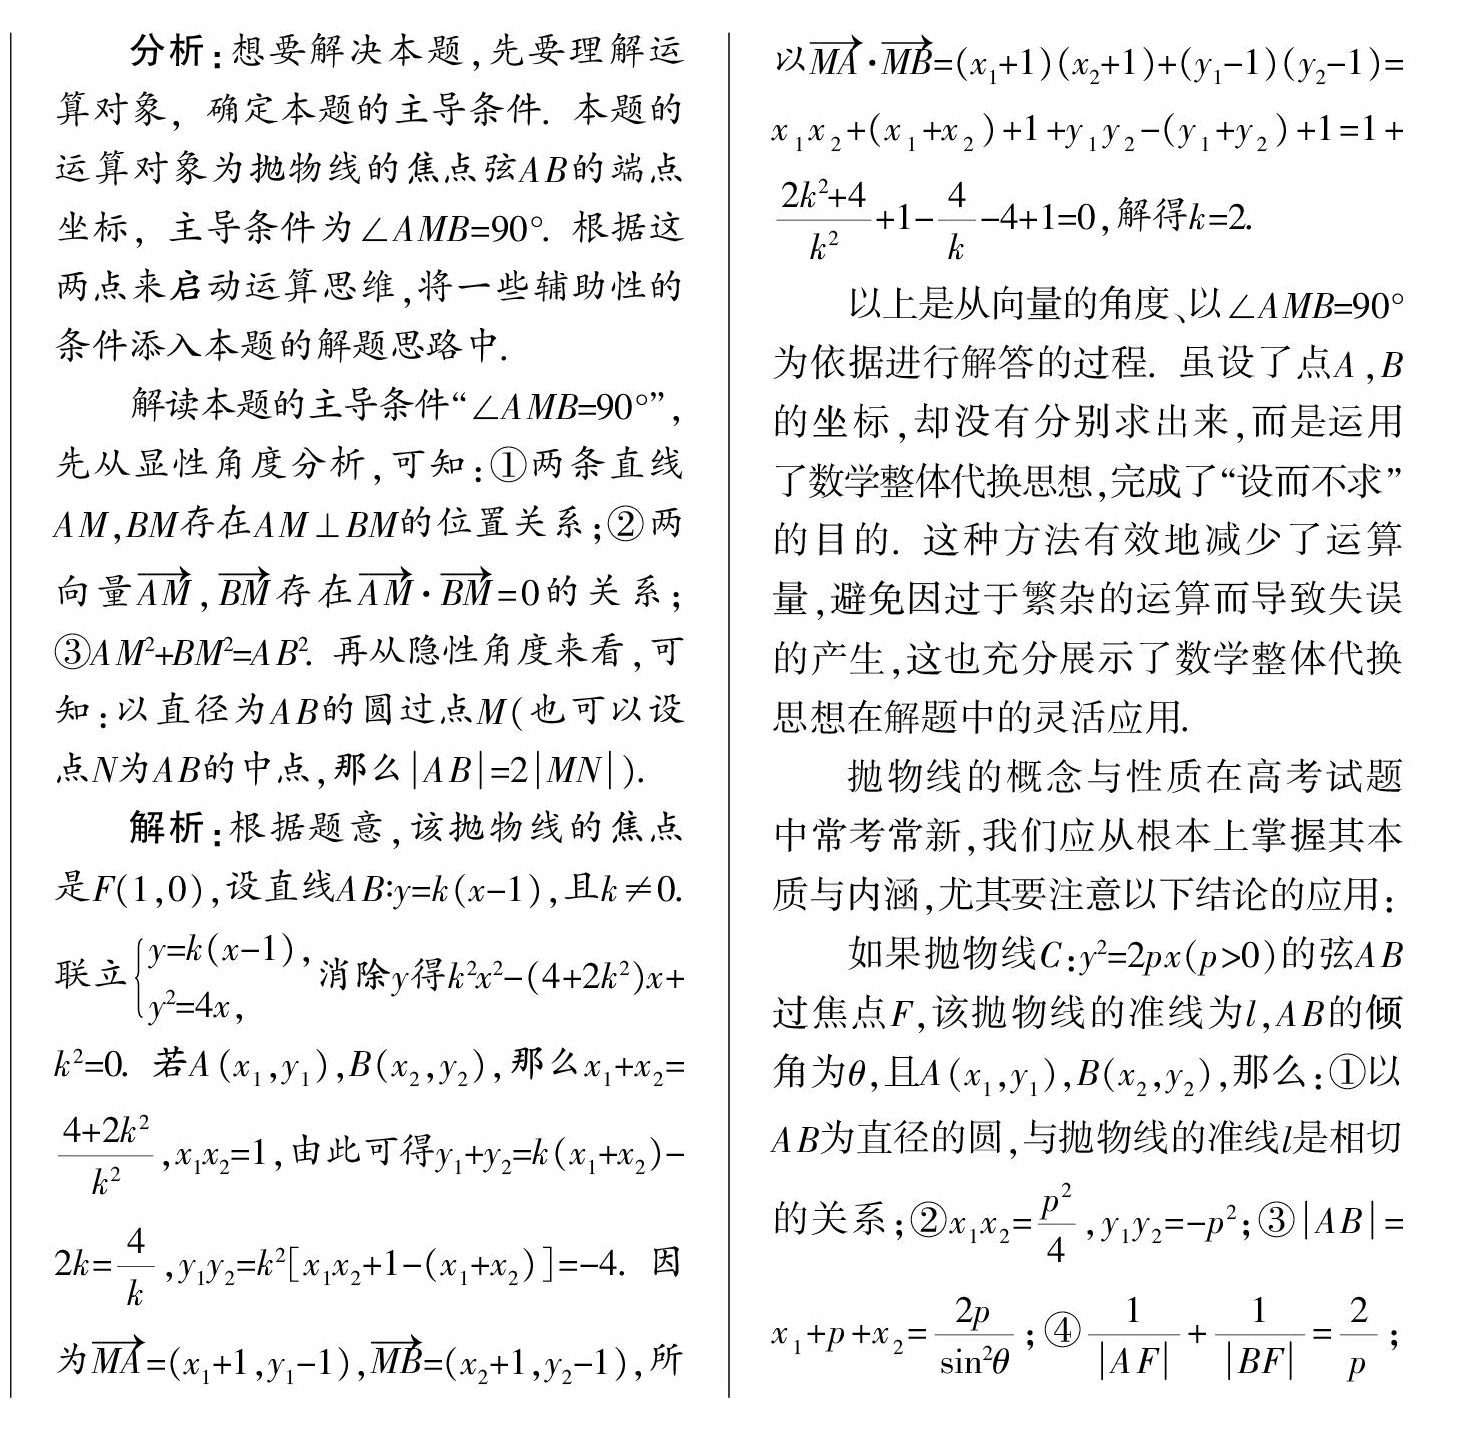 分析:想要解决本题,先要理解运
算对象, 确定本题的主导条件. 本题的
运算对象为抛物线的焦点弦AB的端点
坐标, 主导条件为∠AMB=90°. 根据这
两点来启动运算思维,将一些辅助性的
条件添入本题的解题思路中.
解读本题的主导条件“∠AMB=90°”,
先从显性角度分析,可知:①两条直线
AM,BM存在AM⊥BM的位置关系;②两
向量$\overrightarrow{AM}$,$\overrightarrow{BM}$存在$\overrightarrow{AM}$·$\overrightarrow{BM}$=0的关系;
③AM²+BM²=AB². 再从隐性角度来看,可
知:以直径为AB的圆过点M(也可以设
点N为AB的中点,那么|AB|=2|MN|).
解析:根据题意,该抛物线的焦点
是F(1,0),设直线AB:y=k(x-1),且k≠0.
联立$\begin{cases}y=k(x-1),\\y^2=4x,\end{cases}$消除y得k²x²-(4+2k²)x+
k²=0. 若A(x₁,y₁),B(x₂,y₂),那么x₁+x₂=
$\frac{4+2k^2}{k^2}$,x₁x₂=1,由此可得y₁+y₂=k(x₁+x₂)-
2k=$\frac{4}{k}$,y₁y₂=k²[x₁x₂+1-(x₁+x₂)]=-4. 因
为$\overrightarrow{MA}$=(x₁+1,y₁-1),$\overrightarrow{MB}$=(x₂+1,y₂-1),所
以$\overrightarrow{MA}$·$\overrightarrow{MB}$=(x₁+1)(x₂+1)+(y₁-1)(y₂-1)=
x₁x₂+(x₁+x₂)+1+y₁y₂-(y₁+y₂)+1=1+
$\frac{2k^2+4}{k^2}$+1-$\frac{4}{k}$-4+1=0,解得k=2.
以上是从向量的角度、以∠AMB=90°
为依据进行解答的过程. 虽设了点A,B
的坐标,却没有分别求出来,而是运用
了数学整体代换思想,完成了“设而不求”
的目的. 这种方法有效地减少了运算
量,避免因过于繁杂的运算而导致失误
的产生,这也充分展示了数学整体代换
思想在解题中的灵活应用.
抛物线的概念与性质在高考试题
中常考常新,我们应从根本上掌握其本
质与内涵,尤其要注意以下结论的应用:
如果抛物线C:y²=2px(p>0)的弦AB
过焦点F,该抛物线的准线为l,AB的倾
角为θ,且A(x₁,y₁),B(x₂,y₂),那么:①以
AB为直径的圆,与抛物线的准线l是相切
的关系;②x₁x₂=$\frac{p^2}{4}$,y₁y₂=-p²;③|AB|=
x₁+p+x₂=$\frac{2p}{\sin^2\theta}$;④$\frac{1}{|AF|}$+$\frac{1}{|BF|}$=$\frac{2}{p}$;